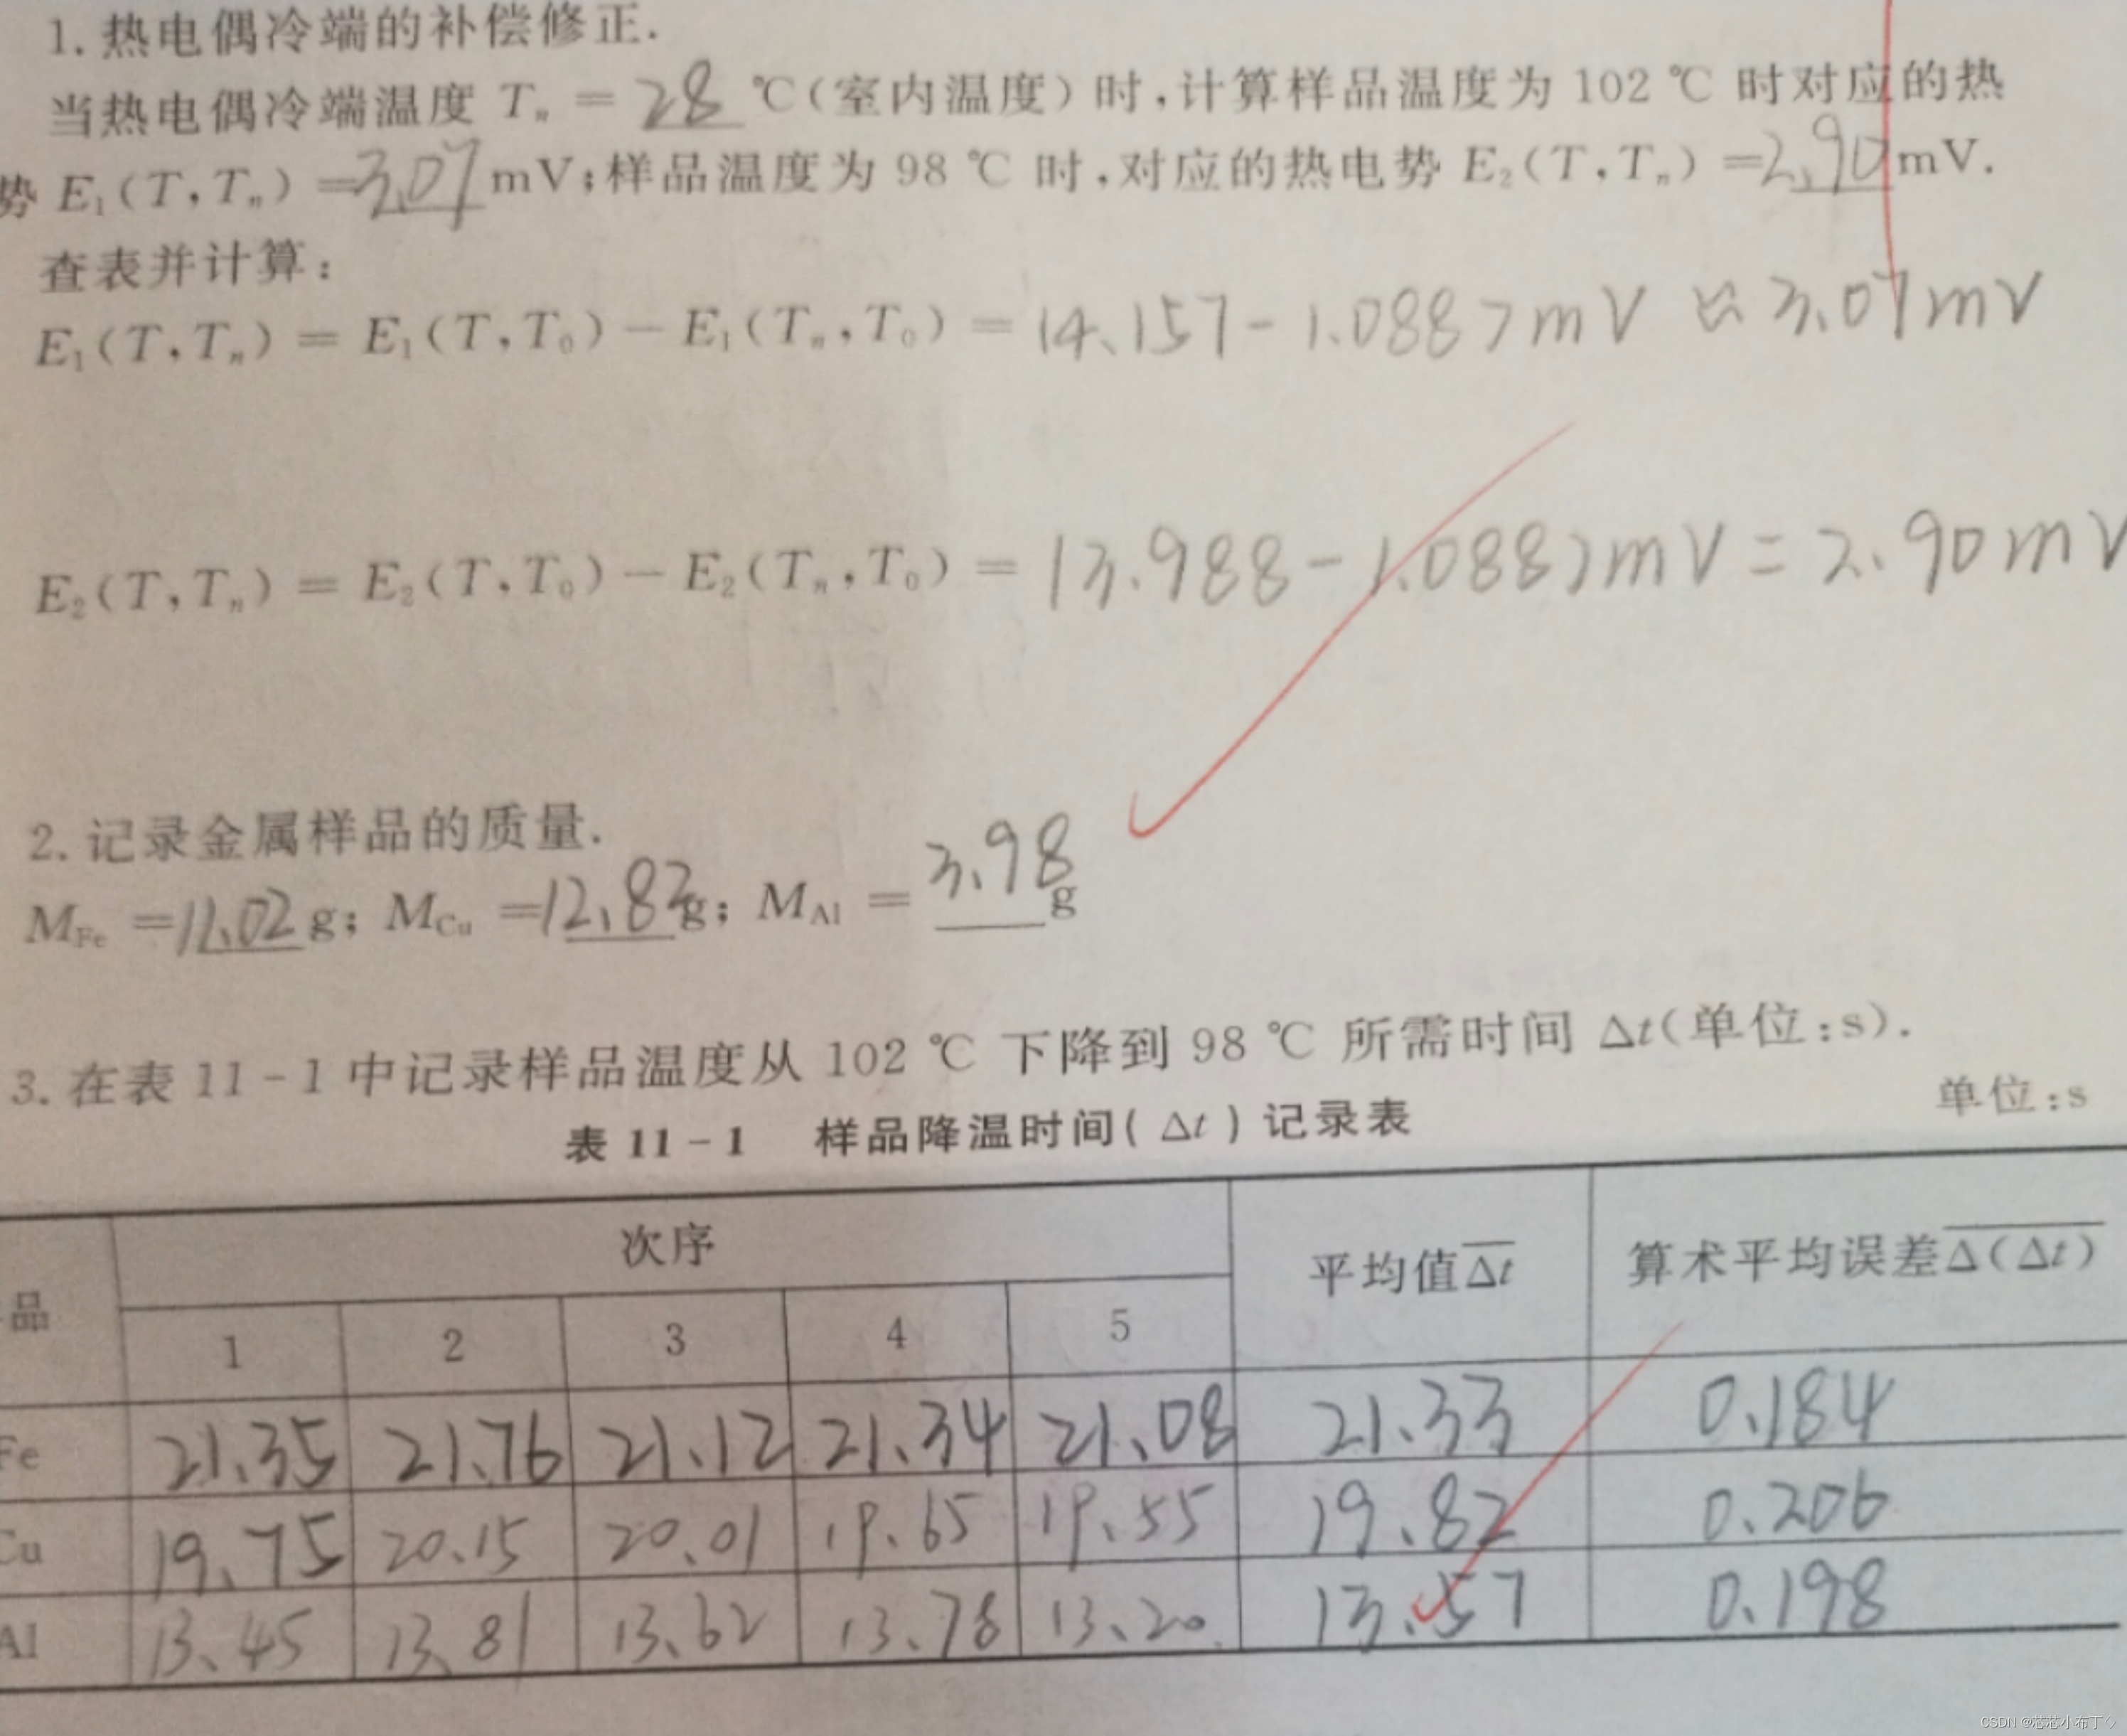 1. 热电偶冷端的补偿修正.
当热电偶冷端温度 Tₙ = 28 ℃(室内温度)时,计算样品温度为 102 ℃ 时对应的热
势 E₁(T,Tₙ) = 3.07 mV;样品温度为 98 ℃ 时,对应的热电势 E₂(T,Tₙ) = 2.90 mV.
查表并计算:
E₁(T,Tₙ) = E₁(T,T₀) − E₁(Tₙ,T₀) = (4.157 - 1.088) mV ≈ 3.07 mV
E₂(T,Tₙ) = E₂(T,T₀) − E₂(Tₙ,T₀) = (3.988 - 1.088) mV = 2.90 mV
2. 记录金属样品的质量.
M_Fe = 11.02 g; M_Cu = 12.82 g; M_Al = 3.98 g
3. 在表 11-1 中记录样品温度从 102 ℃ 下降到 98 ℃ 所需时间 Δt(单位:s).
表 11-1 样品降温时间(Δt)记录表 单位:s
品 次序 平均值Δt 算术平均误差Δ(Δt)
1 2 3 4 5
Fe 21.35 21.76 21.12 21.34 21.08 21.33 0.184
Cu 19.75 20.15 20.01 19.65 19.55 19.82 0.206
Al 13.45 13.81 13.62 13.78 13.20 13.57 0.198
CSDN @芯芯小布丁